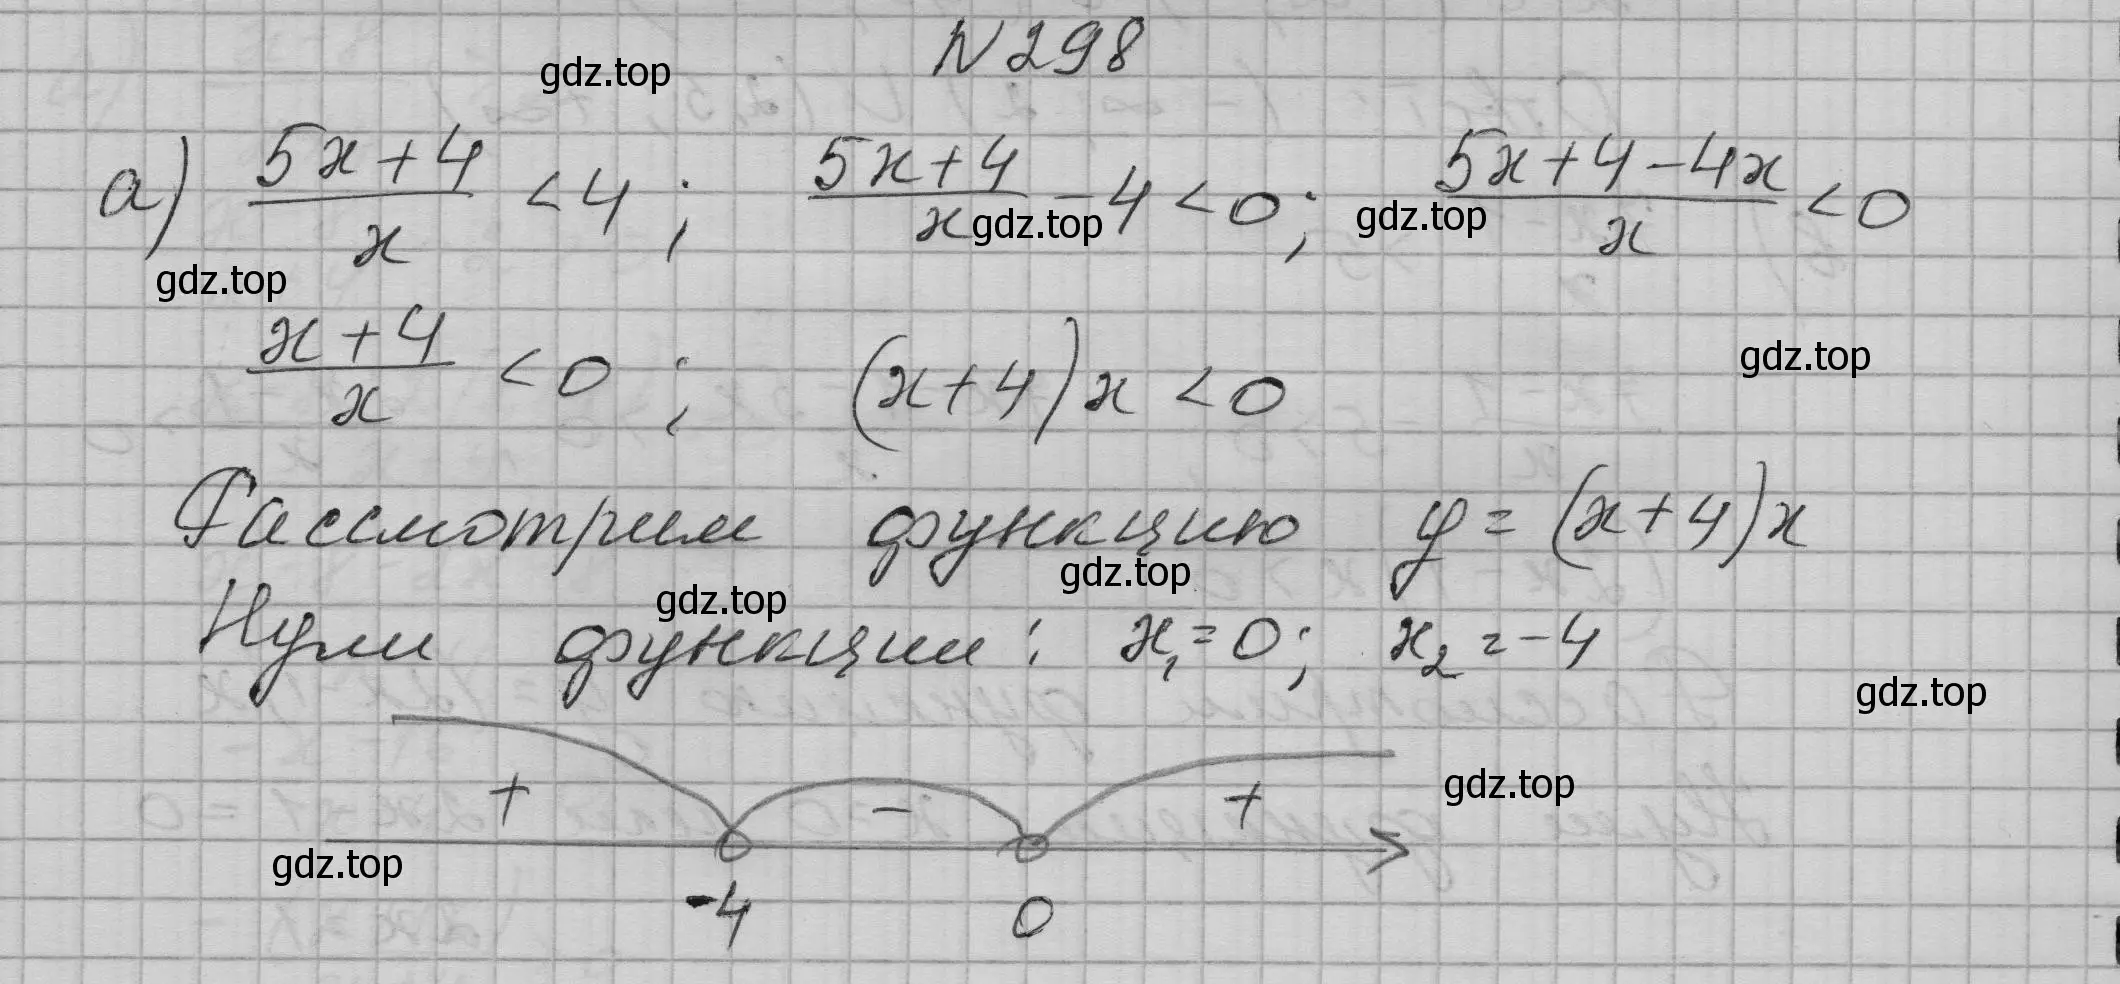 N298
gdz.top
а) (5x+4)/x < 4; (5x+4)/x - 4 < 0; (5x+4-4x)/x < 0
gdz.top gdz.top gdz.top
(x+4)/x < 0; (x+4)x < 0
gdz.top
Рассмотрим функцию y = (x+4)x
gdz.top gdz.top
Нули функции: x₁ = 0; x₂ = -4
gdz.top
+ - +
gdz.top
gdz.top
-4 0